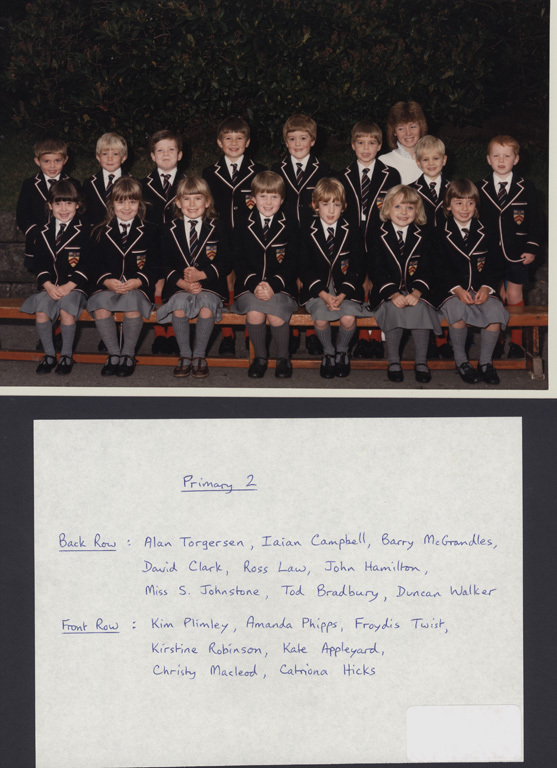 Primary 2
Back Row : Alan Torgersen, Iaian Campbell, Barry McGrandles,
David Clark, Ross Law, John Hamilton,
Miss S. Johnstone, Tod Bradbury, Duncan Walker
Front Row : Kim Plimley, Amanda Phipps, Froydis Twist,
Kirstine Robinson, Kate Appleyard,
Christy Macleod, Catriona Hicks